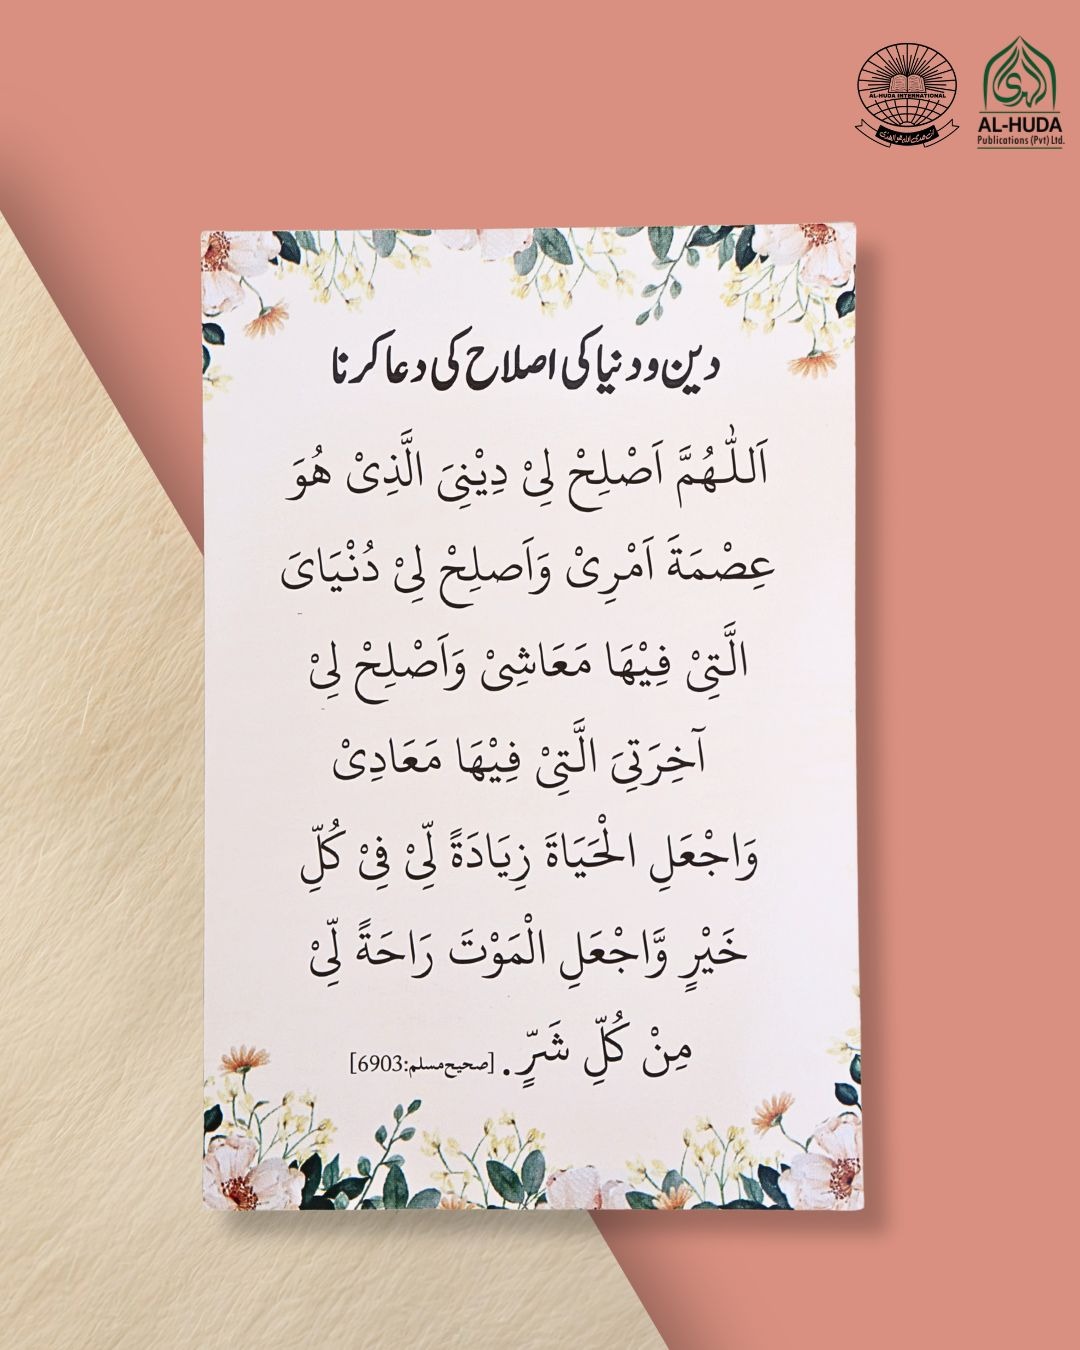 AL-HUDA INTERNATIONAL
AL-HUDA
Publications (Pvt) Ltd.
دین و دنیا کی اصلاح کی دعا کرنا
اَللّٰهُمَّ اَصْلِحْ لِیْ دِیْنِیَ الَّذِیْ هُوَ
عِصْمَةَ اَمْرِیْ وَاَصلِحْ لِیْ دُنْیَایَ
الَّتِیْ فِیْهَا مَعَاشِیْ وَاَصْلِحْ لِیْ
آخِرَتِیَ الَّتِیْ فِیْهَا مَعَادِیْ
وَاجْعَلِ الْحَیَاةَ زِیَادَةً لِّیْ فِیْ كُلِّ
خَیْرٍ وَّاجْعَلِ الْمَوْتَ رَاحَةً لِّیْ
مِنْ كُلِّ شَرٍّ. [صحیح مسلم:6903]